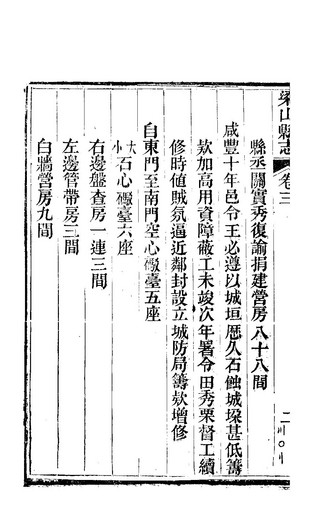 梁山縣志
卷三
二
縣丞關實秀復諭捐建營房八十八間
咸豐十年邑令王必遵以城垣歷久石蝕城垛甚低籌
欵加高用資障蔽工未竣次年署令田秀栗督工續
修時値賊氛逼近鄰封設立城防局籌欵增修
自東門至南門空心礮臺五座
大小石心礮臺六座
右邊盤查房一連三間
左邊管帶房三間
白牆營房九間